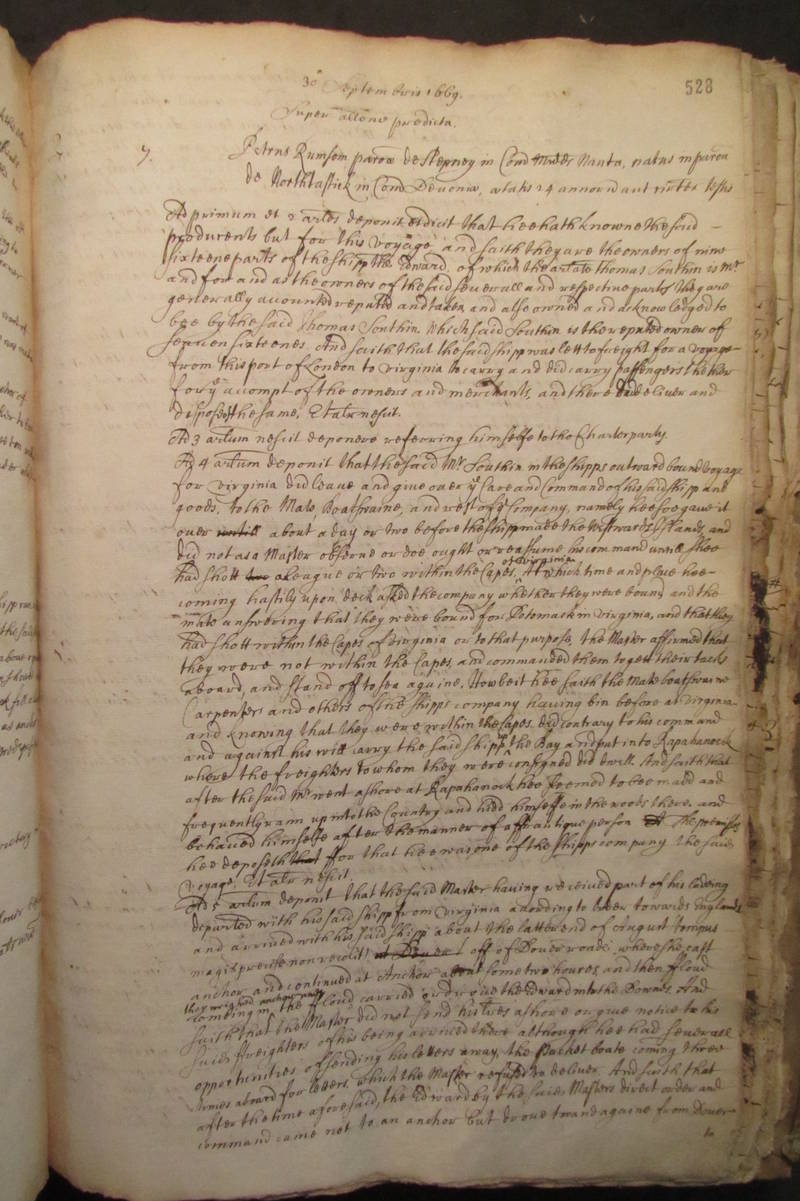 528
30 Septembris 1669.
Super allõne predicta.
7. Petrus Rumsom parõa de Stepney in Com Nauta, natus in parõa
de Northtastick in Com Devoniæ, ætatis 24 annor aut testis
Ad primum et 2 artles deponit et dicit that hee hath knowne the said
producents but for this voyage and saith they are the owners of nine
sixteene parts of the shipp the Edward, of which the arlate Thomas Southin is Mr
and for and as the owners of the said severall and respective parts they are
generally accounted reputed and taken and alsoe owned and acknowledged to
bee by the said Thomas Southin Which said Southin is the reputed owner of
seaven sixteenes. And saith that the said shipp was lett to freight for a voyage
from this port of London to Virginia to carry and did carry passengers thether
for ye accompt of the owners and merchants, and there did deliver and
dispose the same, Et alr nescit.
Ad 3 artlum nescit deponere referring himselfe to the Charterparty
Ad 4 artlum deponit that the said Mr Southin in the shipps outward bound voyage
for Virginia did leave and give over ye Care and Command of his said shipp and
goods, to the Mate, Boatswaine, and rest of ye Company, namely hee soe gave it
over about a day or two before the shipp made the Westward Islands, and
did not as a Master observe or doe ought or reassume his command untill shee
had shott a league or two within the Capes of Virginia, At which time and place hee
coming hastily upon deck asked the company whether they were bound and the
mate answering that they were bound for Potomack in Virginia, and that they
had shott within the Capes of Virginia or to that purpose, the Master affirmed that
they were not within the Capes and commanded them to gett their tacks
aboard, and stand off to sea againe, Howbeit hee saith the Mate boatswaine
Carpenters and others of the shipps company having bin before at Virginia
and knowing that they were within the Capes, did contrary to his command
and against his will carry the said shipp the Bay and put into Rapahanock
where the freighters to whom they were consigned did dwell. And saith that
after the said Mr went ashore at Rapahanock hee seemed to bee madd and
frequently rann up into the Country and hidd himselfe in the woods there, and
behaved himselfe after the manner of a person The premisses
hee deposeth for that hee was one of the shipps company the said
Voyage. Et alr nescit.
Ad 5 artlum deponit that the said Master having received part of his lading
departed with his said shipp from Virginia according to order towards England
and arrived with his said shipp about the latter end of August (tempus
magis precise non recolit) at Dover off of Dover roade, where she cast
anchor and continued at Anchor about some two houres, and then
they weighed anchor and
comeing in the floud carried or drove the Edward into the Downes And
saith that the Master did not send his letters ashore or give notice to his
said freighters of his being arrived there although hee had severall
opportunities of sending his letters away, the Packet boate coming three
times aboard for letters, which the Master refused to deliver. And saith that
after the time aforesaid, the Edward by the said Masters direct order and
command came not to an anchor but drove to and againe from Dover
to